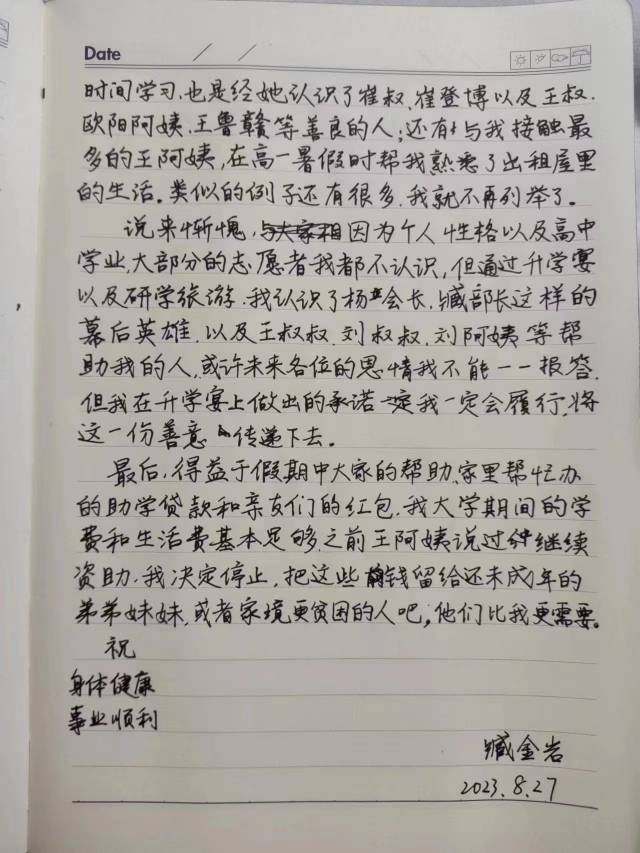 Date / /
时间学习,也是经她认识了崔叔、崔登博以及王叔.
欧阳阿姨、王鲁赣等善良的人;还有与我接触最
多的王阿姨,在高一暑假时帮我熟悉了出租屋里
的生活。类似的例子还有很多,我就不再列举了。
说来惭愧,因为个人性格以及高中
学业,大部分的志愿者我都不认识,但通过升学宴
以及研学旅游,我认识了杨会长、臧部长这样的
幕后英雄,以及王叔叔、刘叔叔、刘阿姨等帮
助我的人,或许未来各位的恩情我不能一一报答,
但我在升学宴上做出的承诺我一定会履行,将
这一份善意传递下去。
最后,得益于假期中大家的帮助、家里帮忙办
的助学贷款和亲友们的红包,我大学期间的学
费和生活费基本足够,之前王阿姨说过继续
资助,我决定停止,把这些钱留给还未成年的
弟弟妹妹,或者家境更贫困的人吧,他们比我更需要。
祝
身体健康
事业顺利
臧金岩
2023.8.27